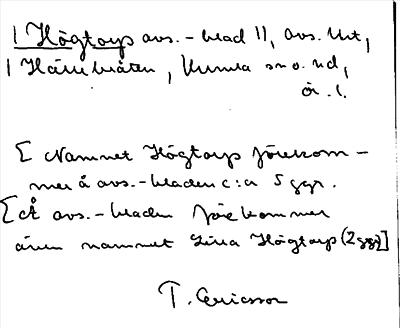 | Högtorp avs.-blad 11, avs. Ut,
| Hällebråten, Kumla sn o. hd,
ör. l.
[ Namnet Högtorp förekom-
mer å avs.-bladen c:a 5 ggr.
[ Å avs.-bladen förekommer
även namnet Lilla Högtorp (2 ggr)]
T. Ericsson